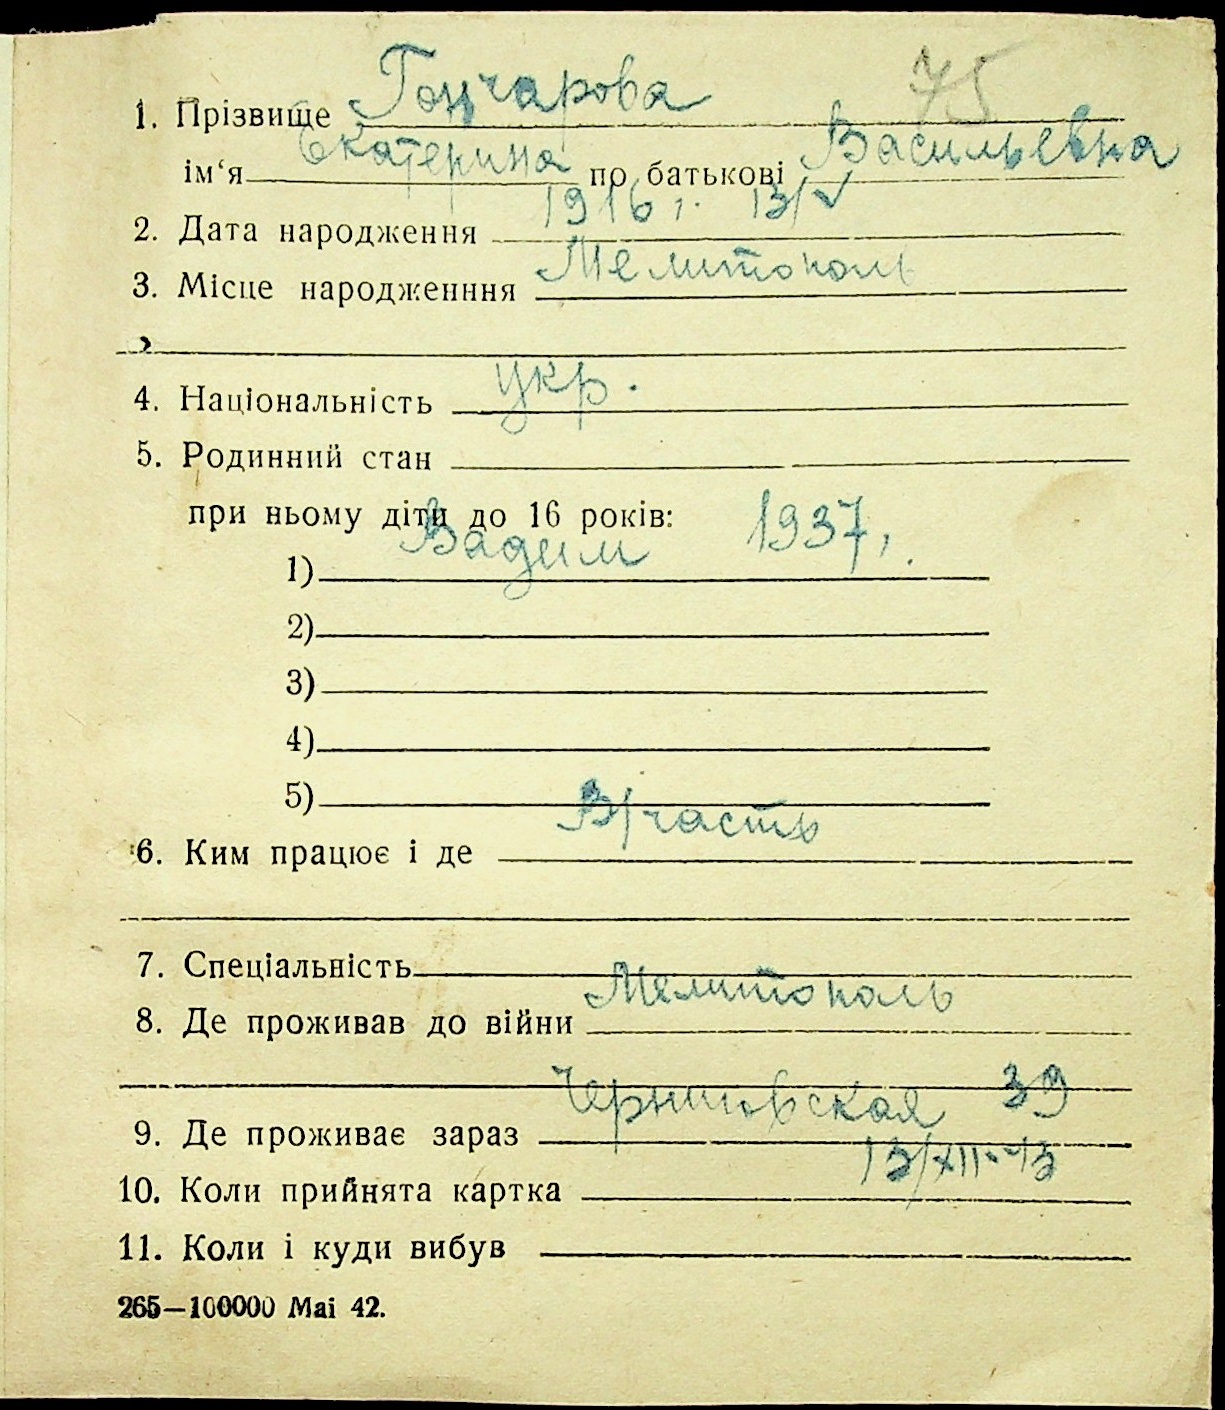 75
1. Прізвище Гончарова
ім‘я Екатерина по батькові Васильевна
2. Дата народження 1916 г. 13/V
3. Місце народженння Мелитополь
4. Національність укр.
5. Родинний стан
при ньому діти до 16 років:
1) Вадим 1937г.
2)
3)
4)
5)
6. Ким працює і де В/часть
7. Спеціальність
8. Де проживав до війни Мелитополь
9. Де проживає зараз 39
10. Коли прийнята картка 13/XII-43
11. Коли і куди вибув
265—100000 Mai 42.